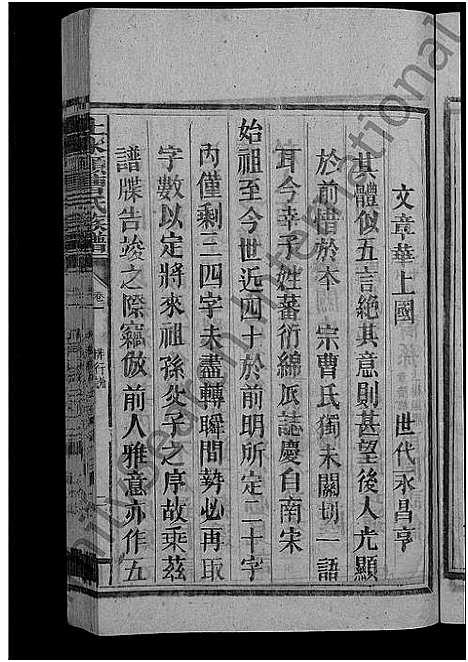 文章華上國 世代永昌亨
其體似五言絶其意則甚望後人光顯
於前惜於本 宗曹氏獨未關切一語
耳今幸子姓蕃衍綿派誌慶自南宋
始祖至今世近四十於前明所定二十字
內僅剩三四字未盡轉瞬間勢必再取
字數以定將來祖孫父子之序故乘茲
譜牒告竣之際竊倣前人雅意亦作五
曹氏族譜
卷一
International